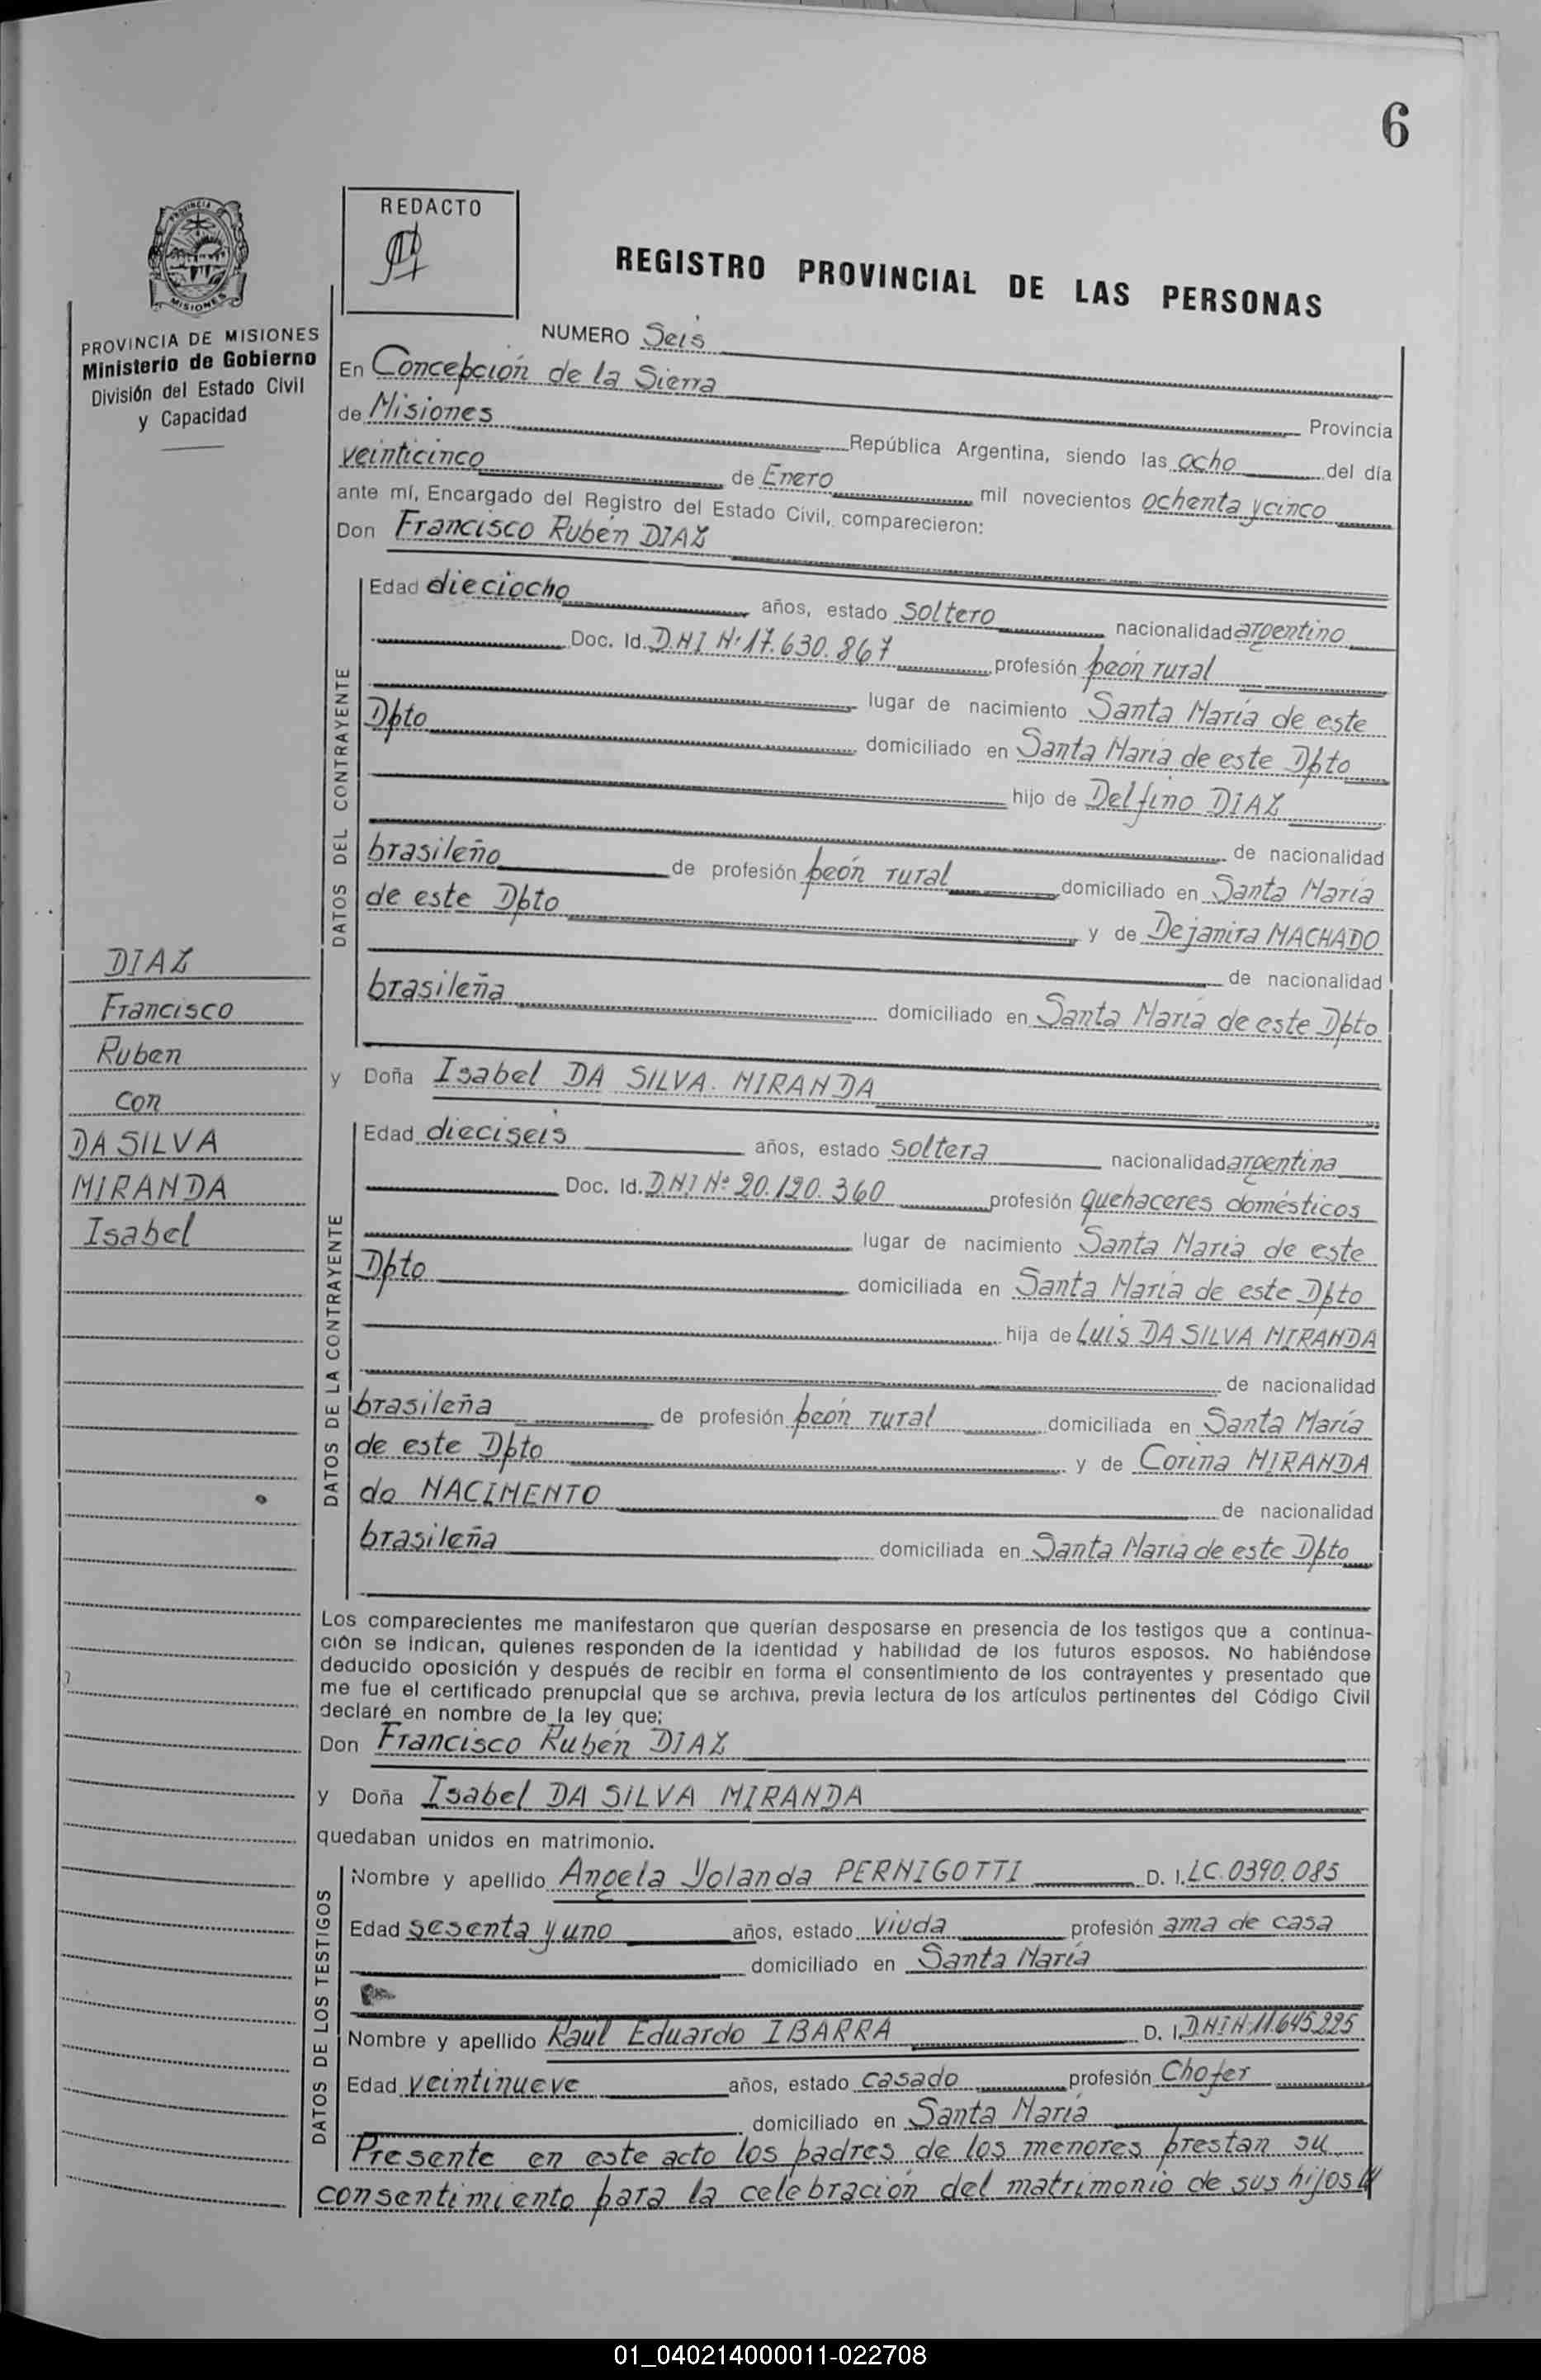 6
REDACTO
REGISTRO PROVINCIAL DE LAS PERSONAS
PROVINCIA DE MISIONES
Ministerio de Gobierno
División del Estado Civil
y Capacidad
NUMERO Seis
En Concepción de la Sierra
Provincia
de Misiones República Argentina, siendo las ocho del día
veinticinco de Enero mil novecientos ochenta y cinco
ante mí, Encargado del Registro del Estado Civil, comparecieron:
Don Francisco Rubén DIAZ
DATOS DEL CONTRAYENTE
Edad dieciocho años, estado soltero nacionalidad argentino
Doc. Id. D.N.I Nº 17.630.867 profesión peón rural
lugar de nacimiento Santa María de este
Dpto domiciliado en Santa María de este Dpto
hijo de Delfino DIAZ
de nacionalidad
brasileño de profesión peón rural domiciliado en Santa María
de este Dpto y de Dejanira MACHADO
de nacionalidad
brasileña domiciliado en Santa María de este Dpto
DIAZ
Francisco
Ruben
con
DA SILVA
MIRANDA
Isabel
y Doña Isabel DA SILVA MIRANDA
DATOS DE LA CONTRAYENTE
Edad dieciseis años, estado soltera nacionalidad argentina
Doc. Id. DNI Nº 20.120.360 profesión quehaceres domésticos
lugar de nacimiento Santa María de este
Dpto domiciliada en Santa María de este Dpto
hija de Luis DA SILVA MIRANDA
de nacionalidad
brasileña de profesión peón rural domiciliada en Santa María
de este Dpto y de Corina MIRANDA
do NACIMENTO de nacionalidad
brasileña domiciliada en Santa María de este Dpto
Los comparecientes me manifestaron que querían desposarse en presencia de los testigos que a continua-
ción se indican, quienes responden de la identidad y habilidad de los futuros esposos. No habiéndose
deducido oposición y después de recibir en forma el consentimiento de los contrayentes y presentado que
me fue el certificado prenupcial que se archiva, previa lectura de los artículos pertinentes del Código Civil
declaré en nombre de la ley que:
Don Francisco Rubén DIAZ
y Doña Isabel DA SILVA MIRANDA
quedaban unidos en matrimonio.
DATOS DE LOS TESTIGOS
Nombre y apellido Angela Yolanda PERNIGOTTI D. I. LC.0390.085
Edad sesenta y uno años, estado viuda profesión ama de casa
domiciliado en Santa María
Nombre y apellido Raul Eduardo IBARRA D. I. DNI N 11.645.225
Edad veintinueve años, estado casado profesión Chofer
domiciliado en Santa María
Presente en este acto los padres de los menores prestan su
consentimiento para la celebración del matrimonio de sus hijos
01_040214000011-022708